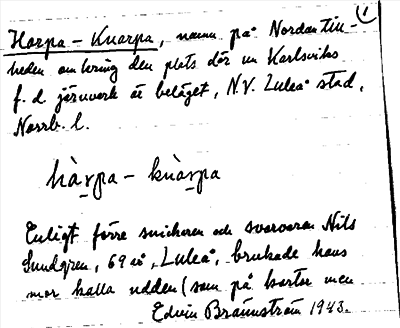 1
Harpa-Knarpa, namn på Nordantill-
heden omkring den plats där nu Karlsviks
f. d. järnverk är beläget, N.V. Luleå stad,
Norrb. l.
hàrpa - knàrpa
Enligt förre snickaren och svarvaren Nils
Sundgren, 69 år, Luleå, brukade hans
mor kalla udden (som på kartor men
Edvin Brännström 1943.